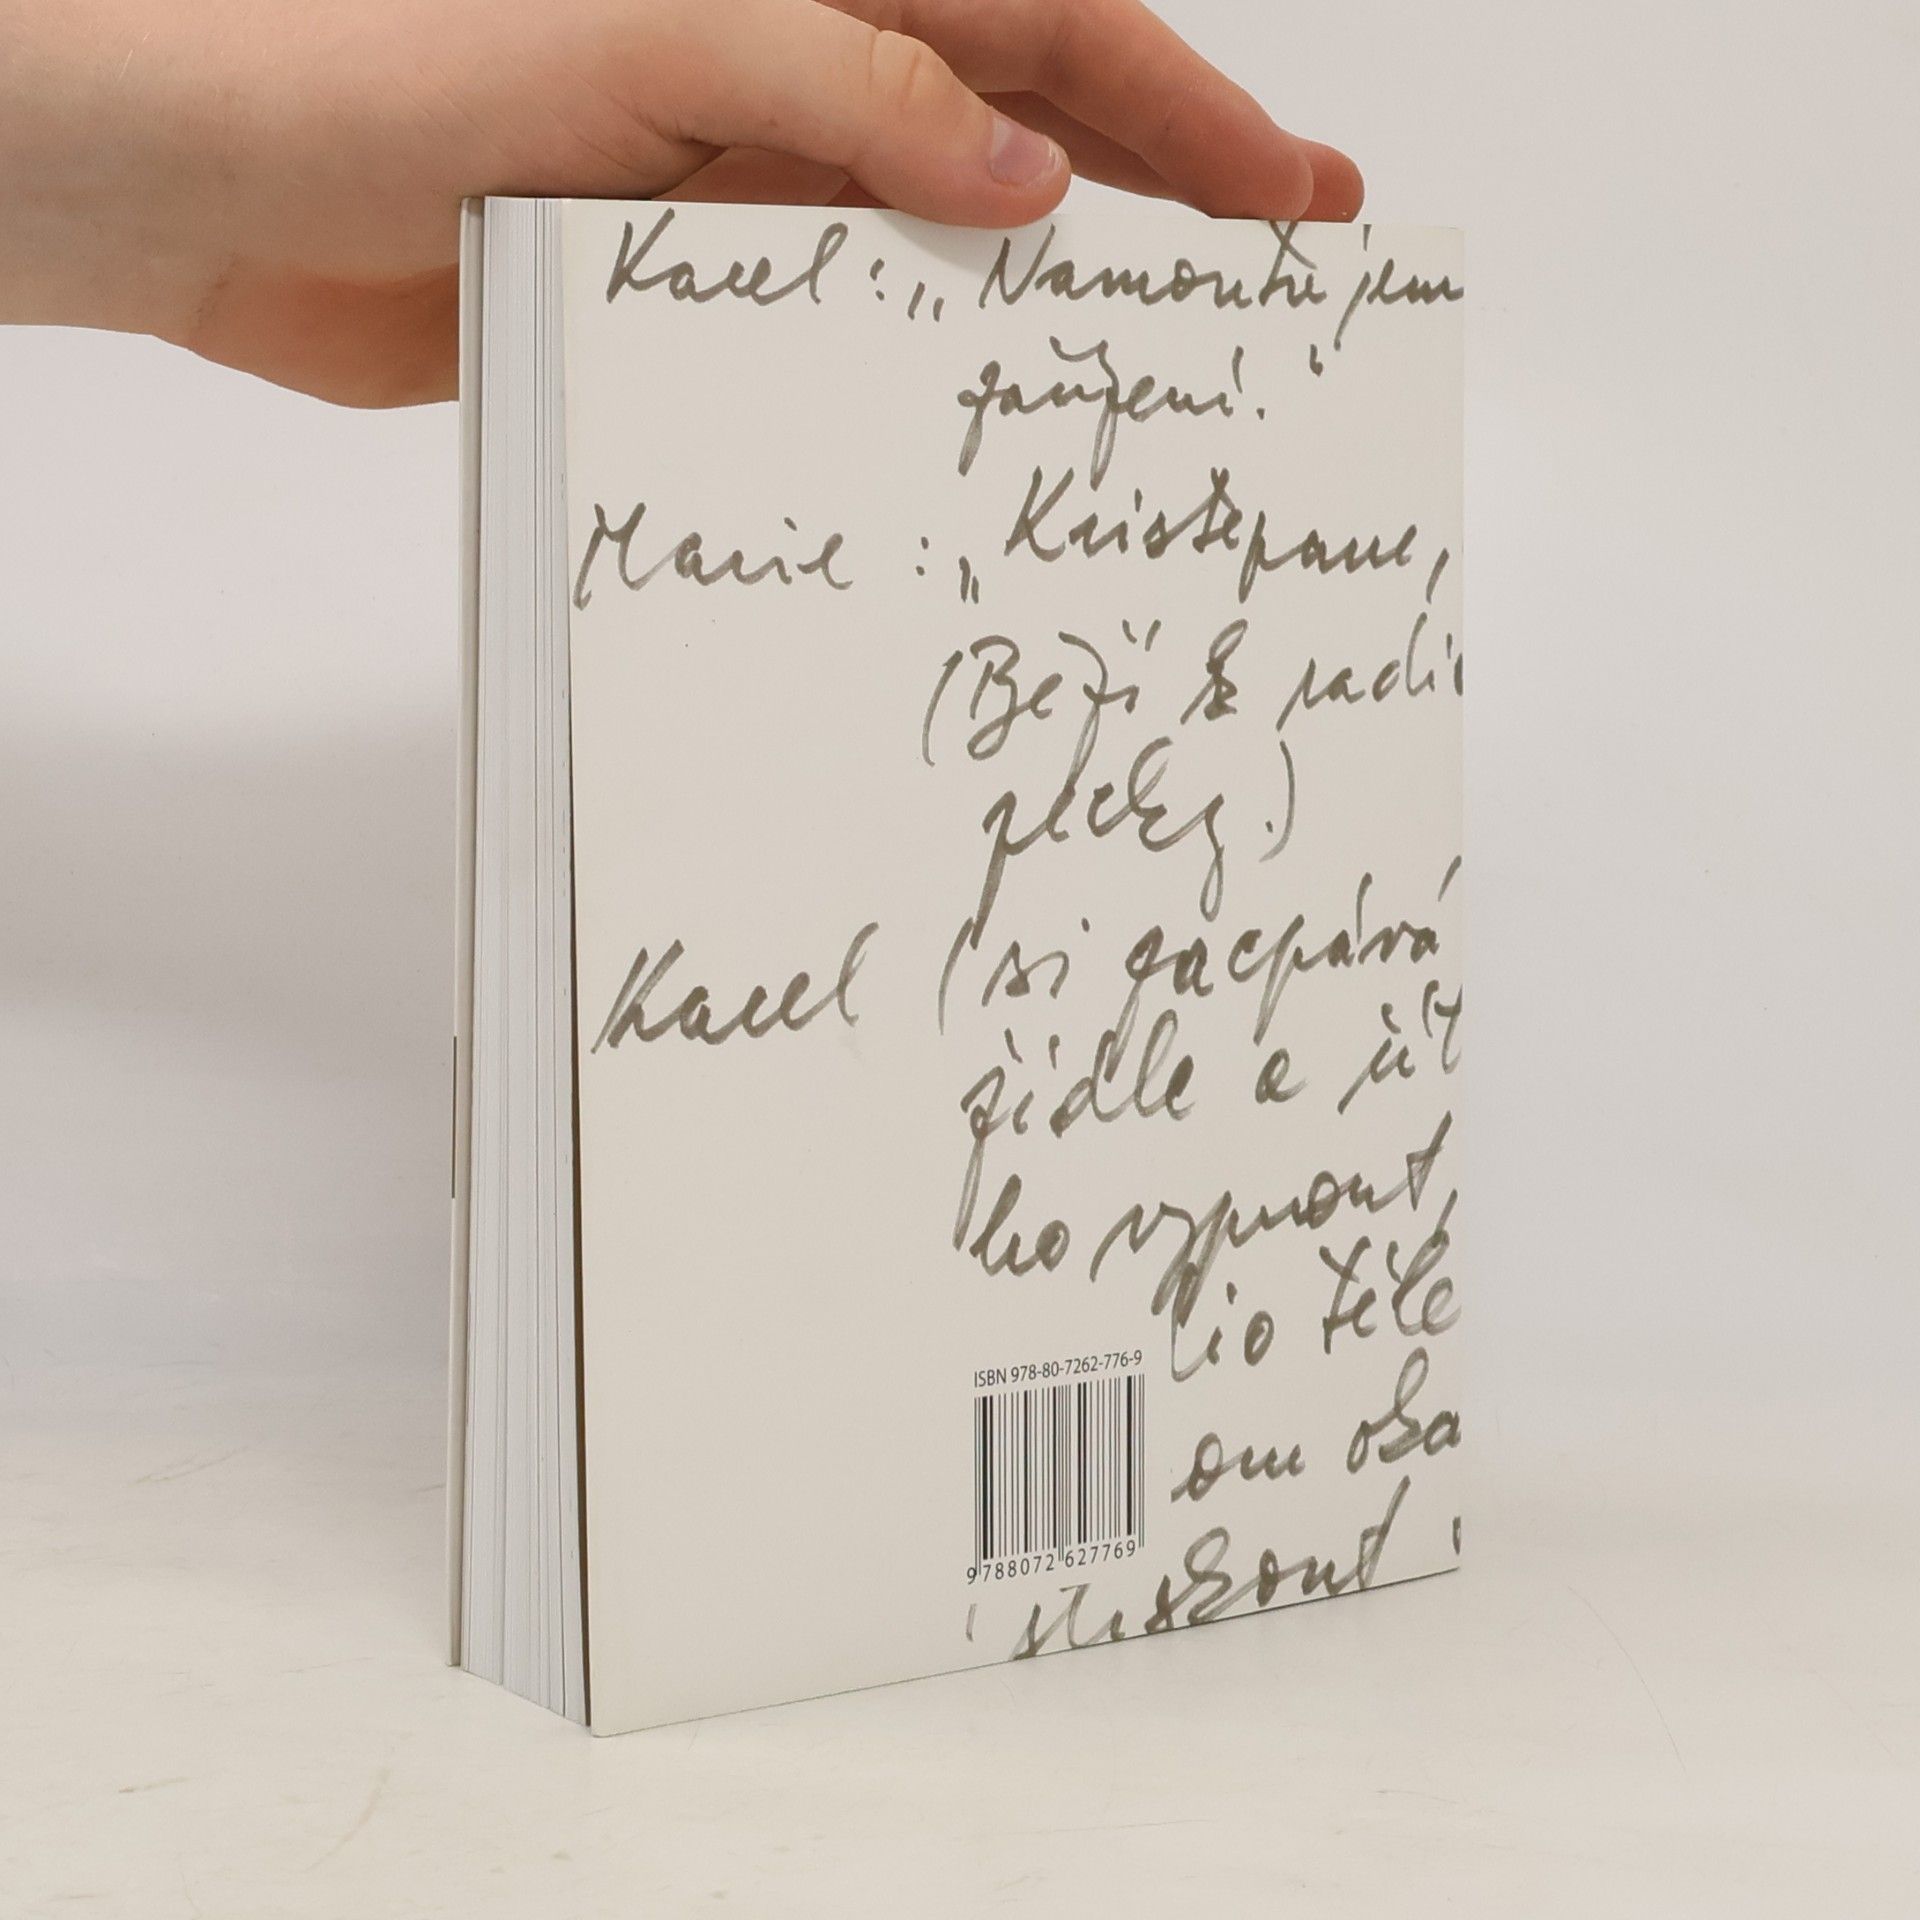 Karel : „Namontuji jem
zařízení.“
Marie : „Kristepane,
(Běží k radi
pecky.)
Karel (si zacpává
židle a
ho vypnout,
om oka
stisknout
ISBN 978-80-7262-776-9
9 788072 627769